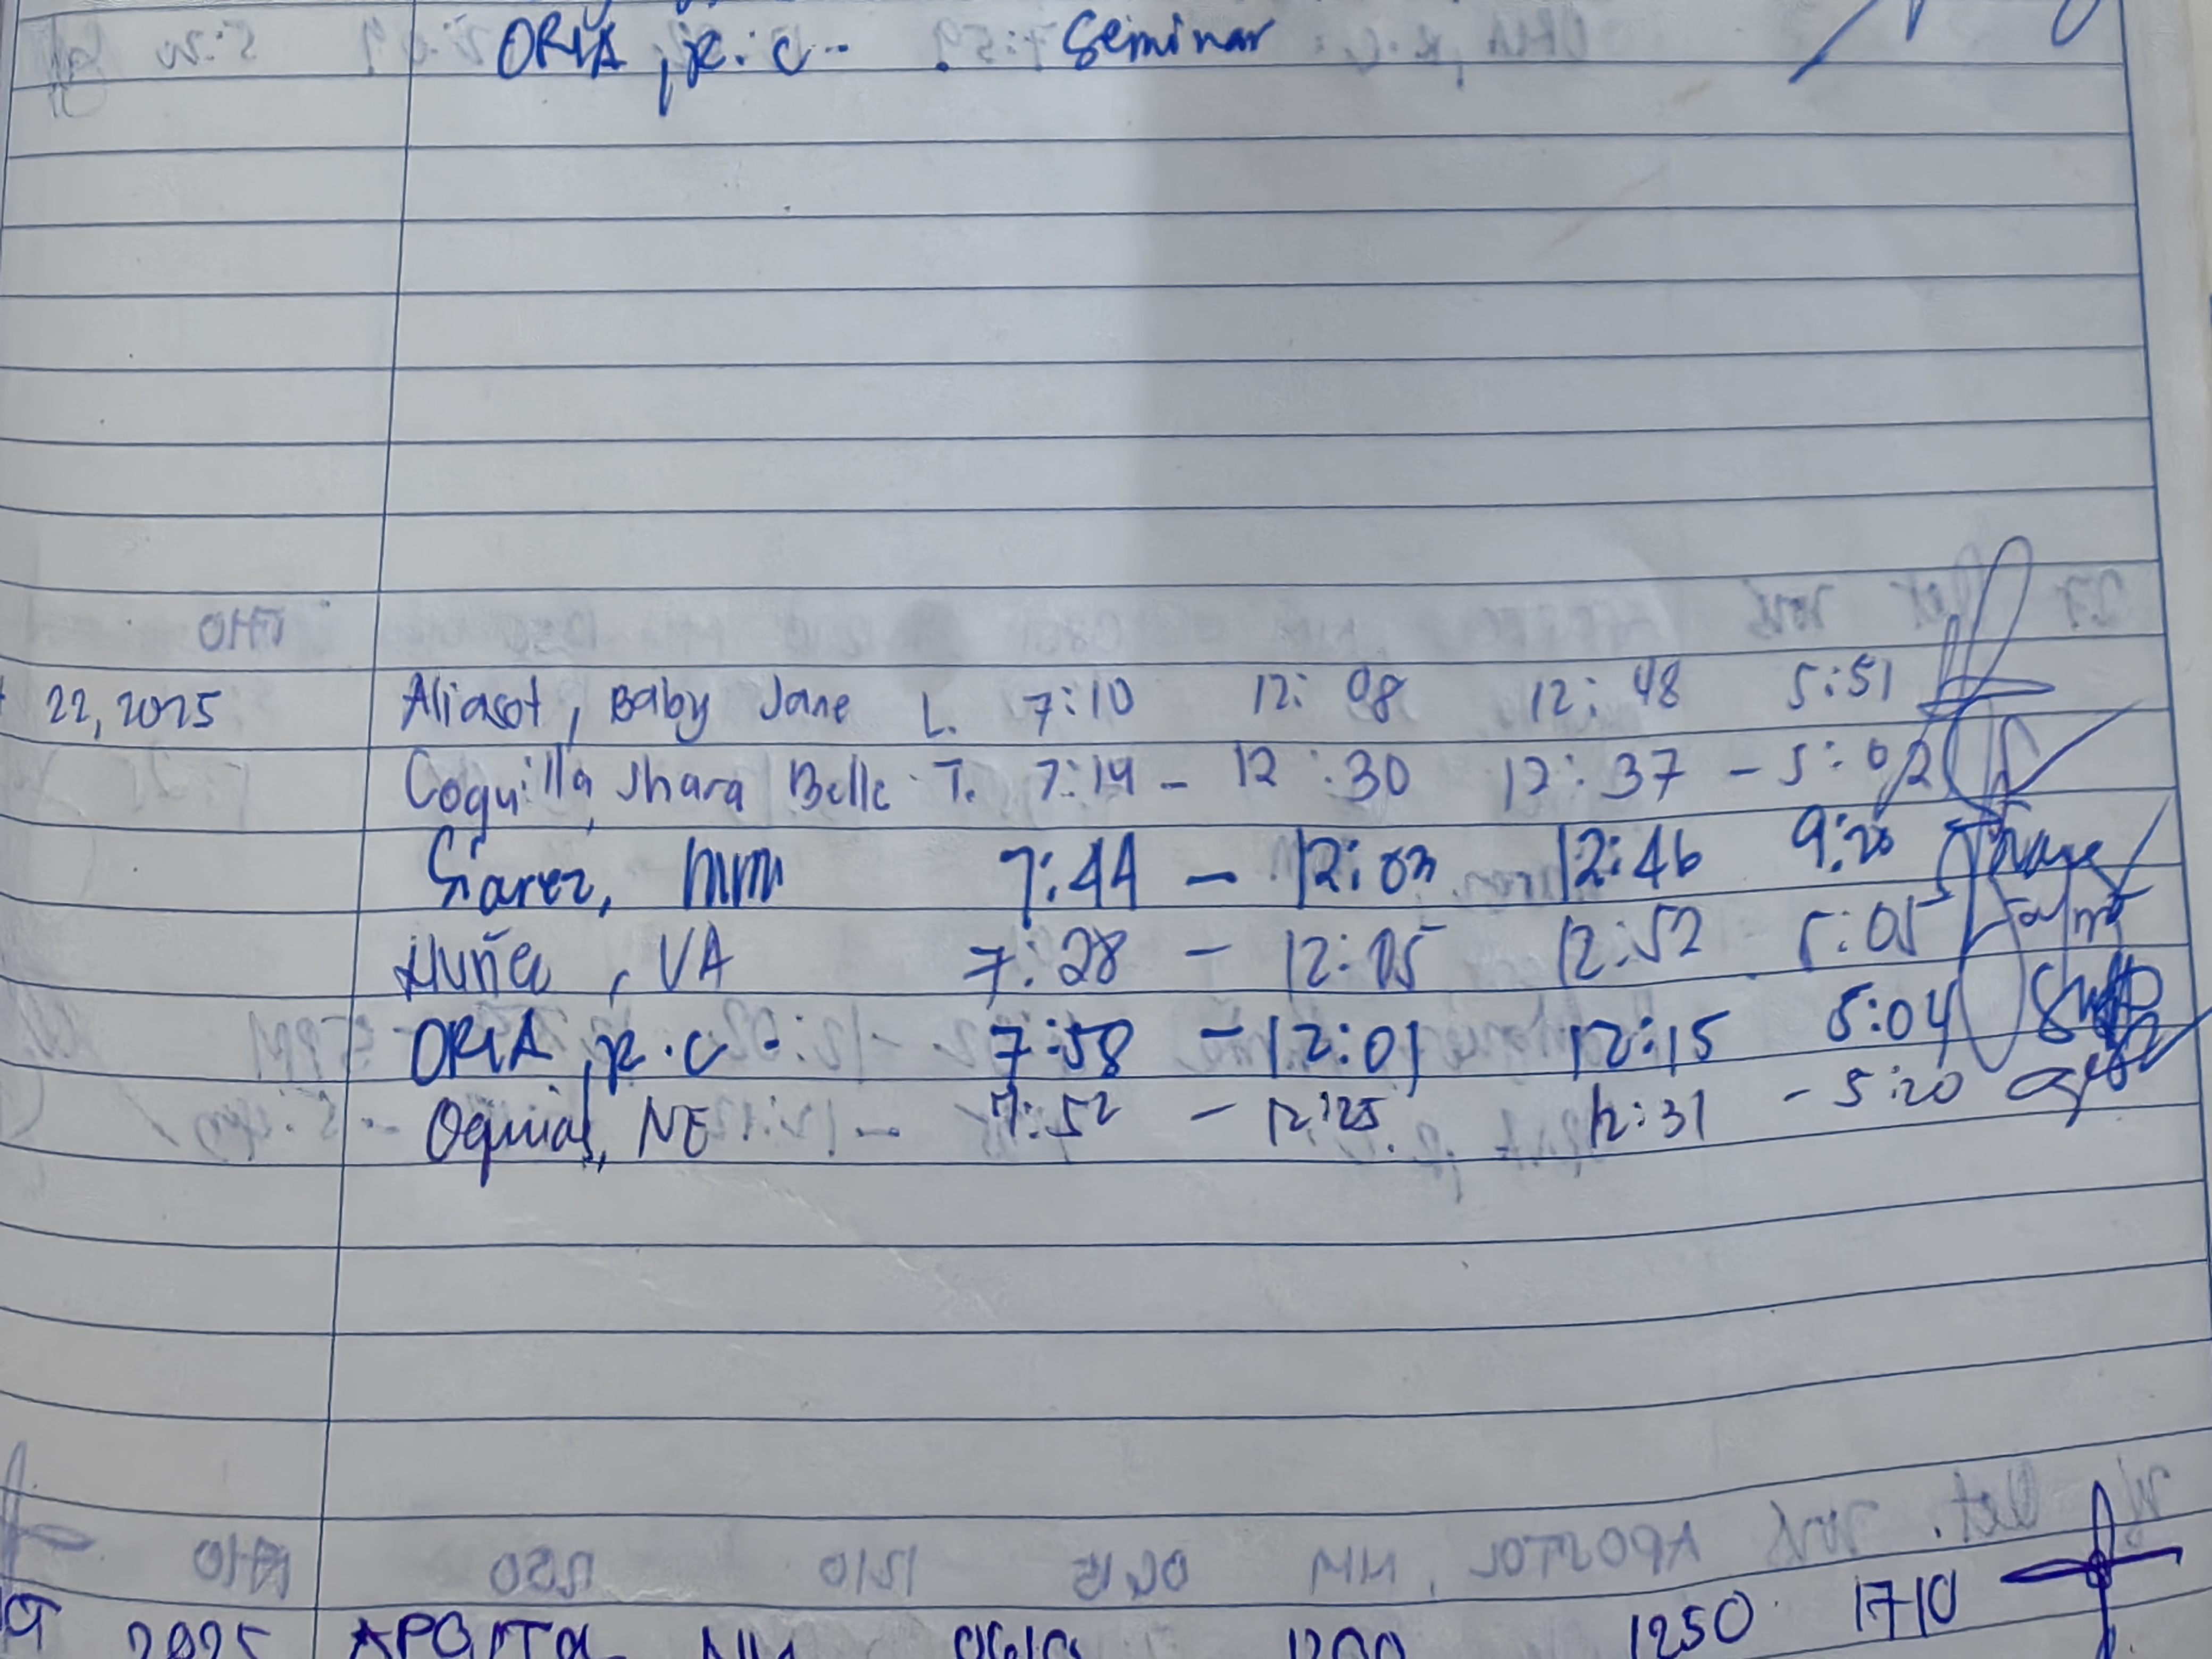 ORIA, R.C. Seminar
22, 2025 Aliasot, Baby Jane L. 7:10 12:08 12:48 5:51
Coquilla, Jhara Belle T. 7:14 - 12:30 12:37 - 5:02
Suarez, MM 7:44 - 12:03 12:46 9:20
VA 7:28 - 12:05 12:52 5:05
ORIA, R.C. 7:58 - 12:01 12:15 5:04
NE 7:52 - 12:25 12:31 - 5:20
2025 1250 1710